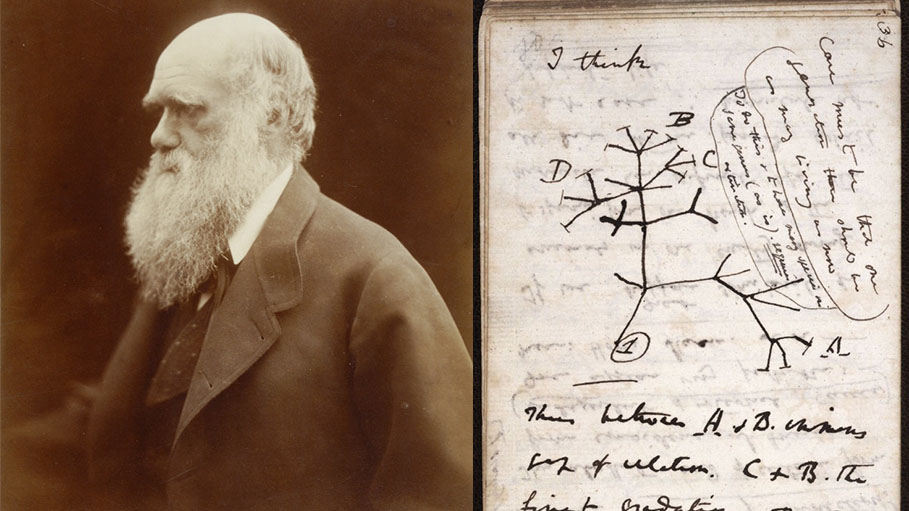 36
I think
Case must be that one
generation then should be
as many living as now
To do this & to have many species in
same genus (as is). requires
extinction.
B
C
D
1
A
Thus between A & B. immens
gap of relation. C & B. the
finest gradation